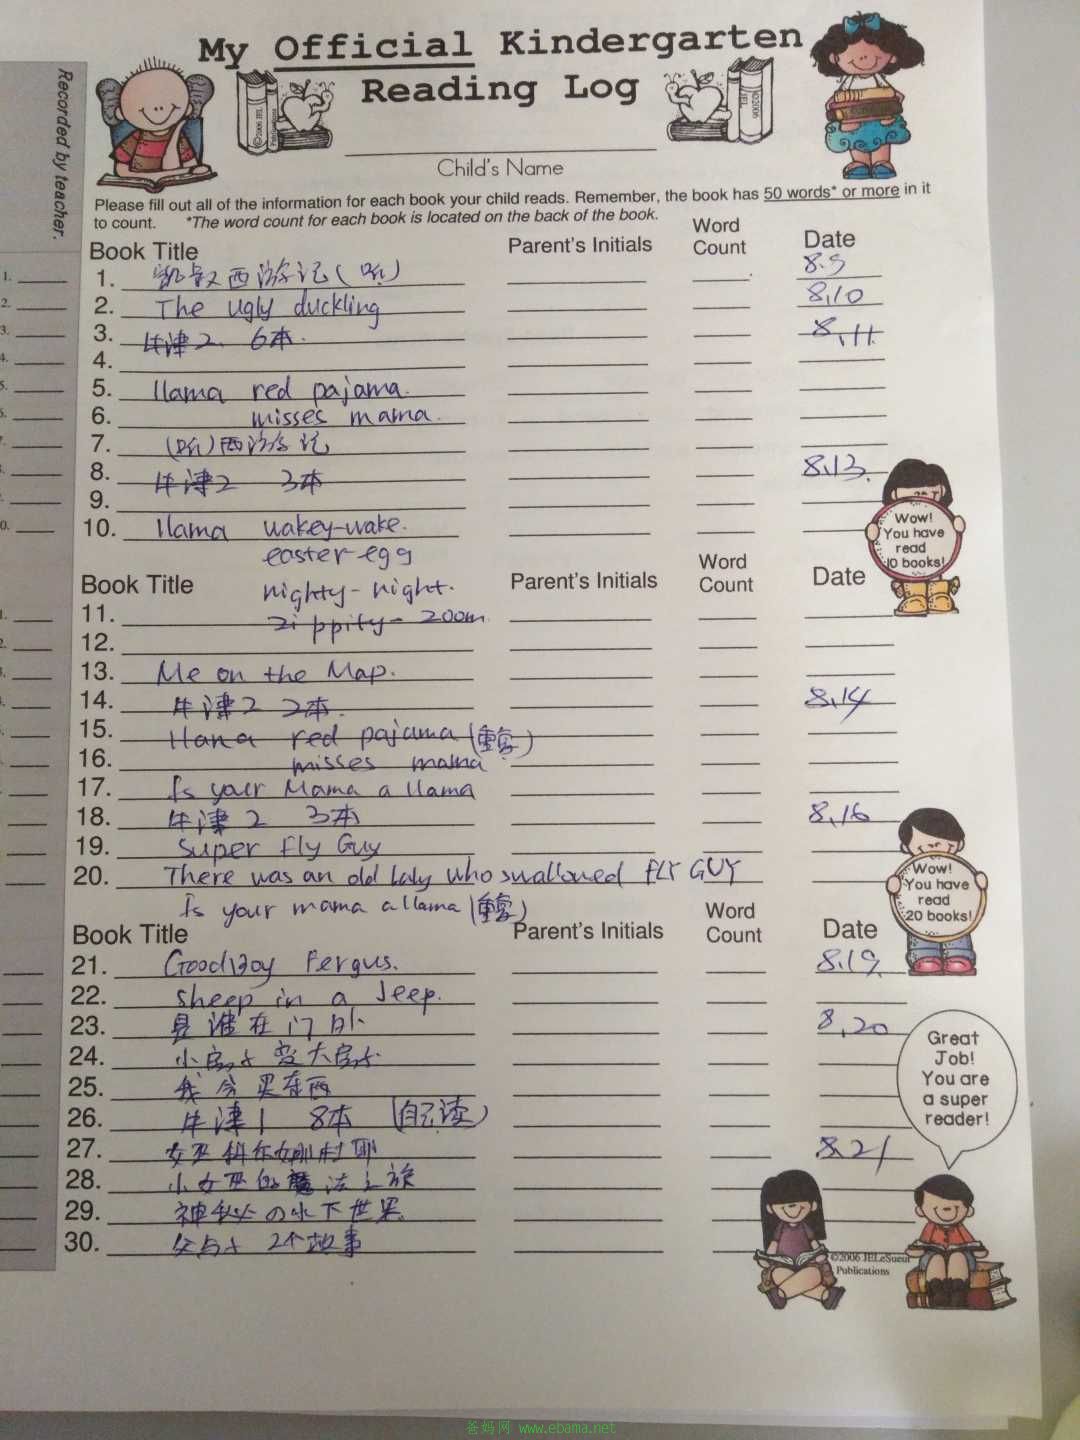 My Official Kindergarten
Reading Log
Recorded by teacher.
©2006 JEL
Publications
©2006
JEL
Child's Name
Please fill out all of the information for each book your child reads. Remember, the book has 50 words* or more in it
to count. *The word count for each book is located on the back of the book.
Book Title Parent's Initials Word Count Date
1. 凯叔西游记(听) 8.9
2. The ugly duckling 8,10
3. 牛津2 6本. 8,11.
4.
5. llama red pajama.
6. misses mama.
7. (听)西游记
8. 牛津2 3本 8,13.
9.
10. llama wakey-wake.
easter egg
Wow!
You have
read
10 books!
Book Title nighty-night. Parent's Initials Word Count Date
11. zippity-zoom
12.
13. Me on the Map.
14. 牛津2 2本. 8,14
15. llama red pajama(重复)
16. misses mama
17. Is your Mama a llama
18. 牛津2 3本 8,16
19. Super Fly Guy
20. There was an old laly who swallowed FLY GUY
Is your mama a llama(重复)
Wow!
You have
read
20 books!
Book Title Parent's Initials Word Count Date
21. Good Boy Fergus. 8.19.
22. Sheep in a Jeep.
23. 是谁在门外 8,20
24. 小房子变大房子
25. 我会买东西
26. 牛津1 8本 (自己读)
27. 女巫 8.21
28. 小女巫的魔法之旅
29. 神秘の水下世界.
30. 父与子 2个故事
Great
Job!
You are
a super
reader!
©2006 JELeSueur
Publications
爸妈网 www.ebama.net